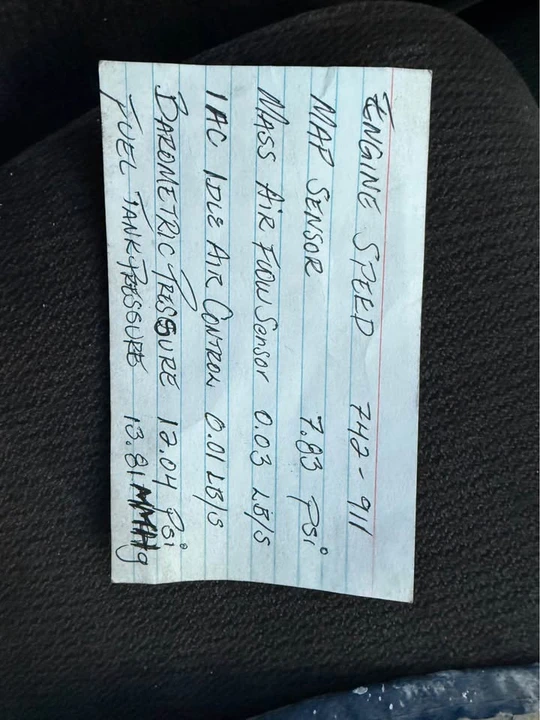 ENGINE SPEED 742-911
MAP SENSOR 7.83 PSi
MASS AIR FLOW Sensor 0.03 LB/S
IAC IDLE AIR CONTROL 0.01 LB/S
BAROMETRIC PRESSURE 12.04 PSi
FUEL TANK PRESSURE 13.81 MMHg